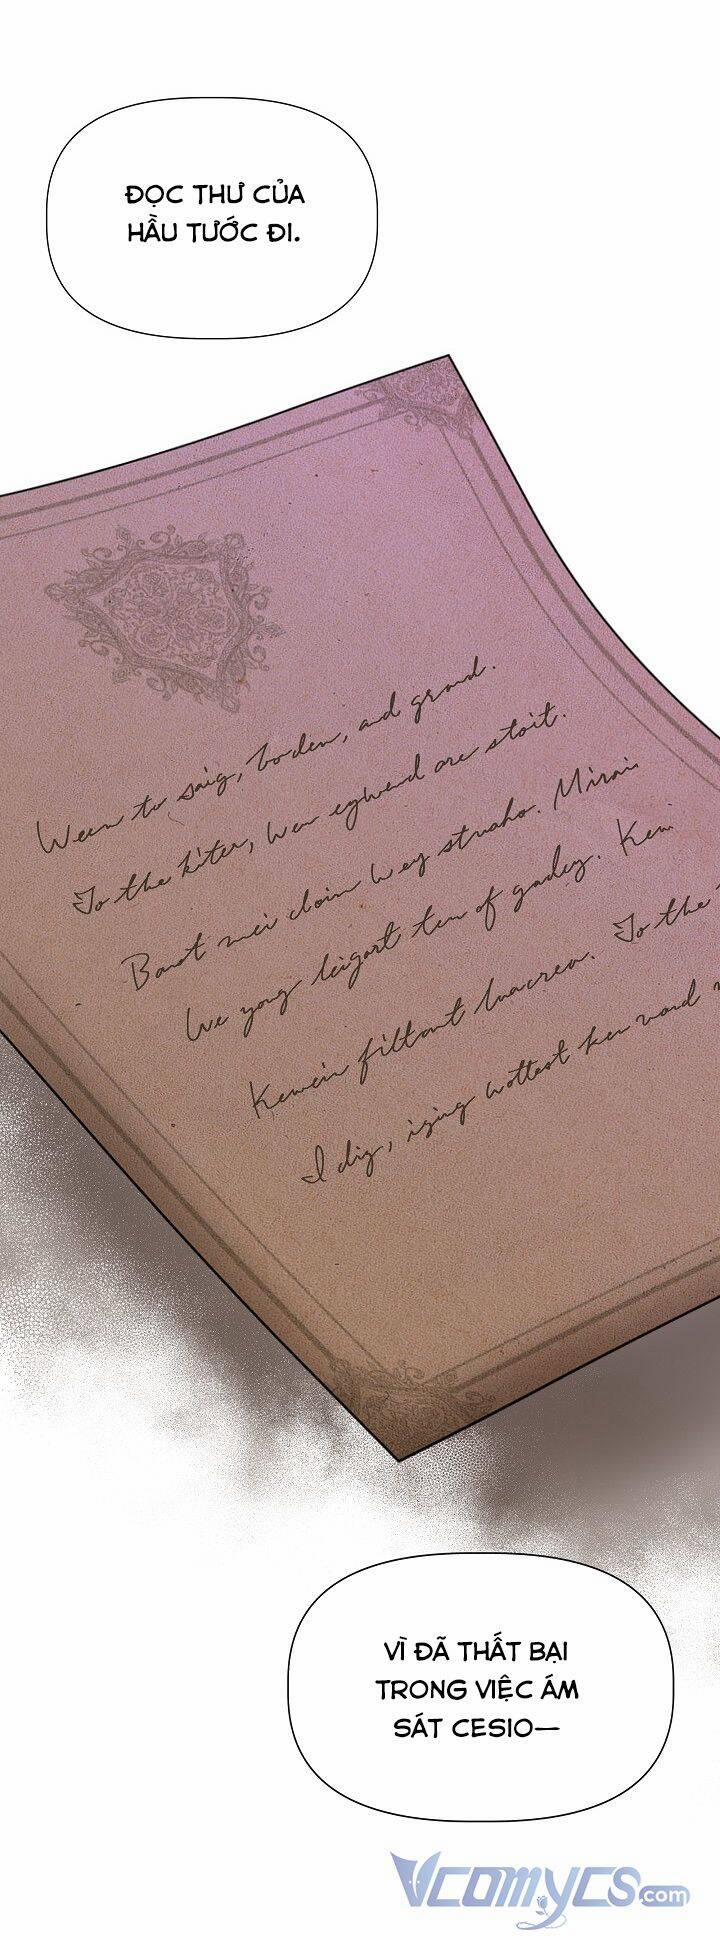 ĐỌC THƯ CỦA
HẦU TƯỚC ĐI.
Ween to saig, boden, and grond.
To the kiter, wen egwend are stoit.
Banot mei cloin wey strusho. Mirai
We yong leigort ten of gadey. Kem
Kewein filtont luacrea. To the
I dig, izing wottest ken word
VÌ ĐÃ THẤT BẠI
TRONG VIỆC ÁM
SÁT CESIO—
VCOMYCS.com